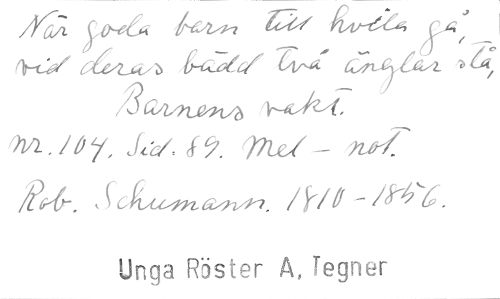 När goda barn till hvila gå,
vid deras bädd två änglar stå,
Barnens vakt.
nr. 104. Sid. 89. Mel – not.
Rob. Schumann. 1810–1856.
Unga Röster A, Tegner